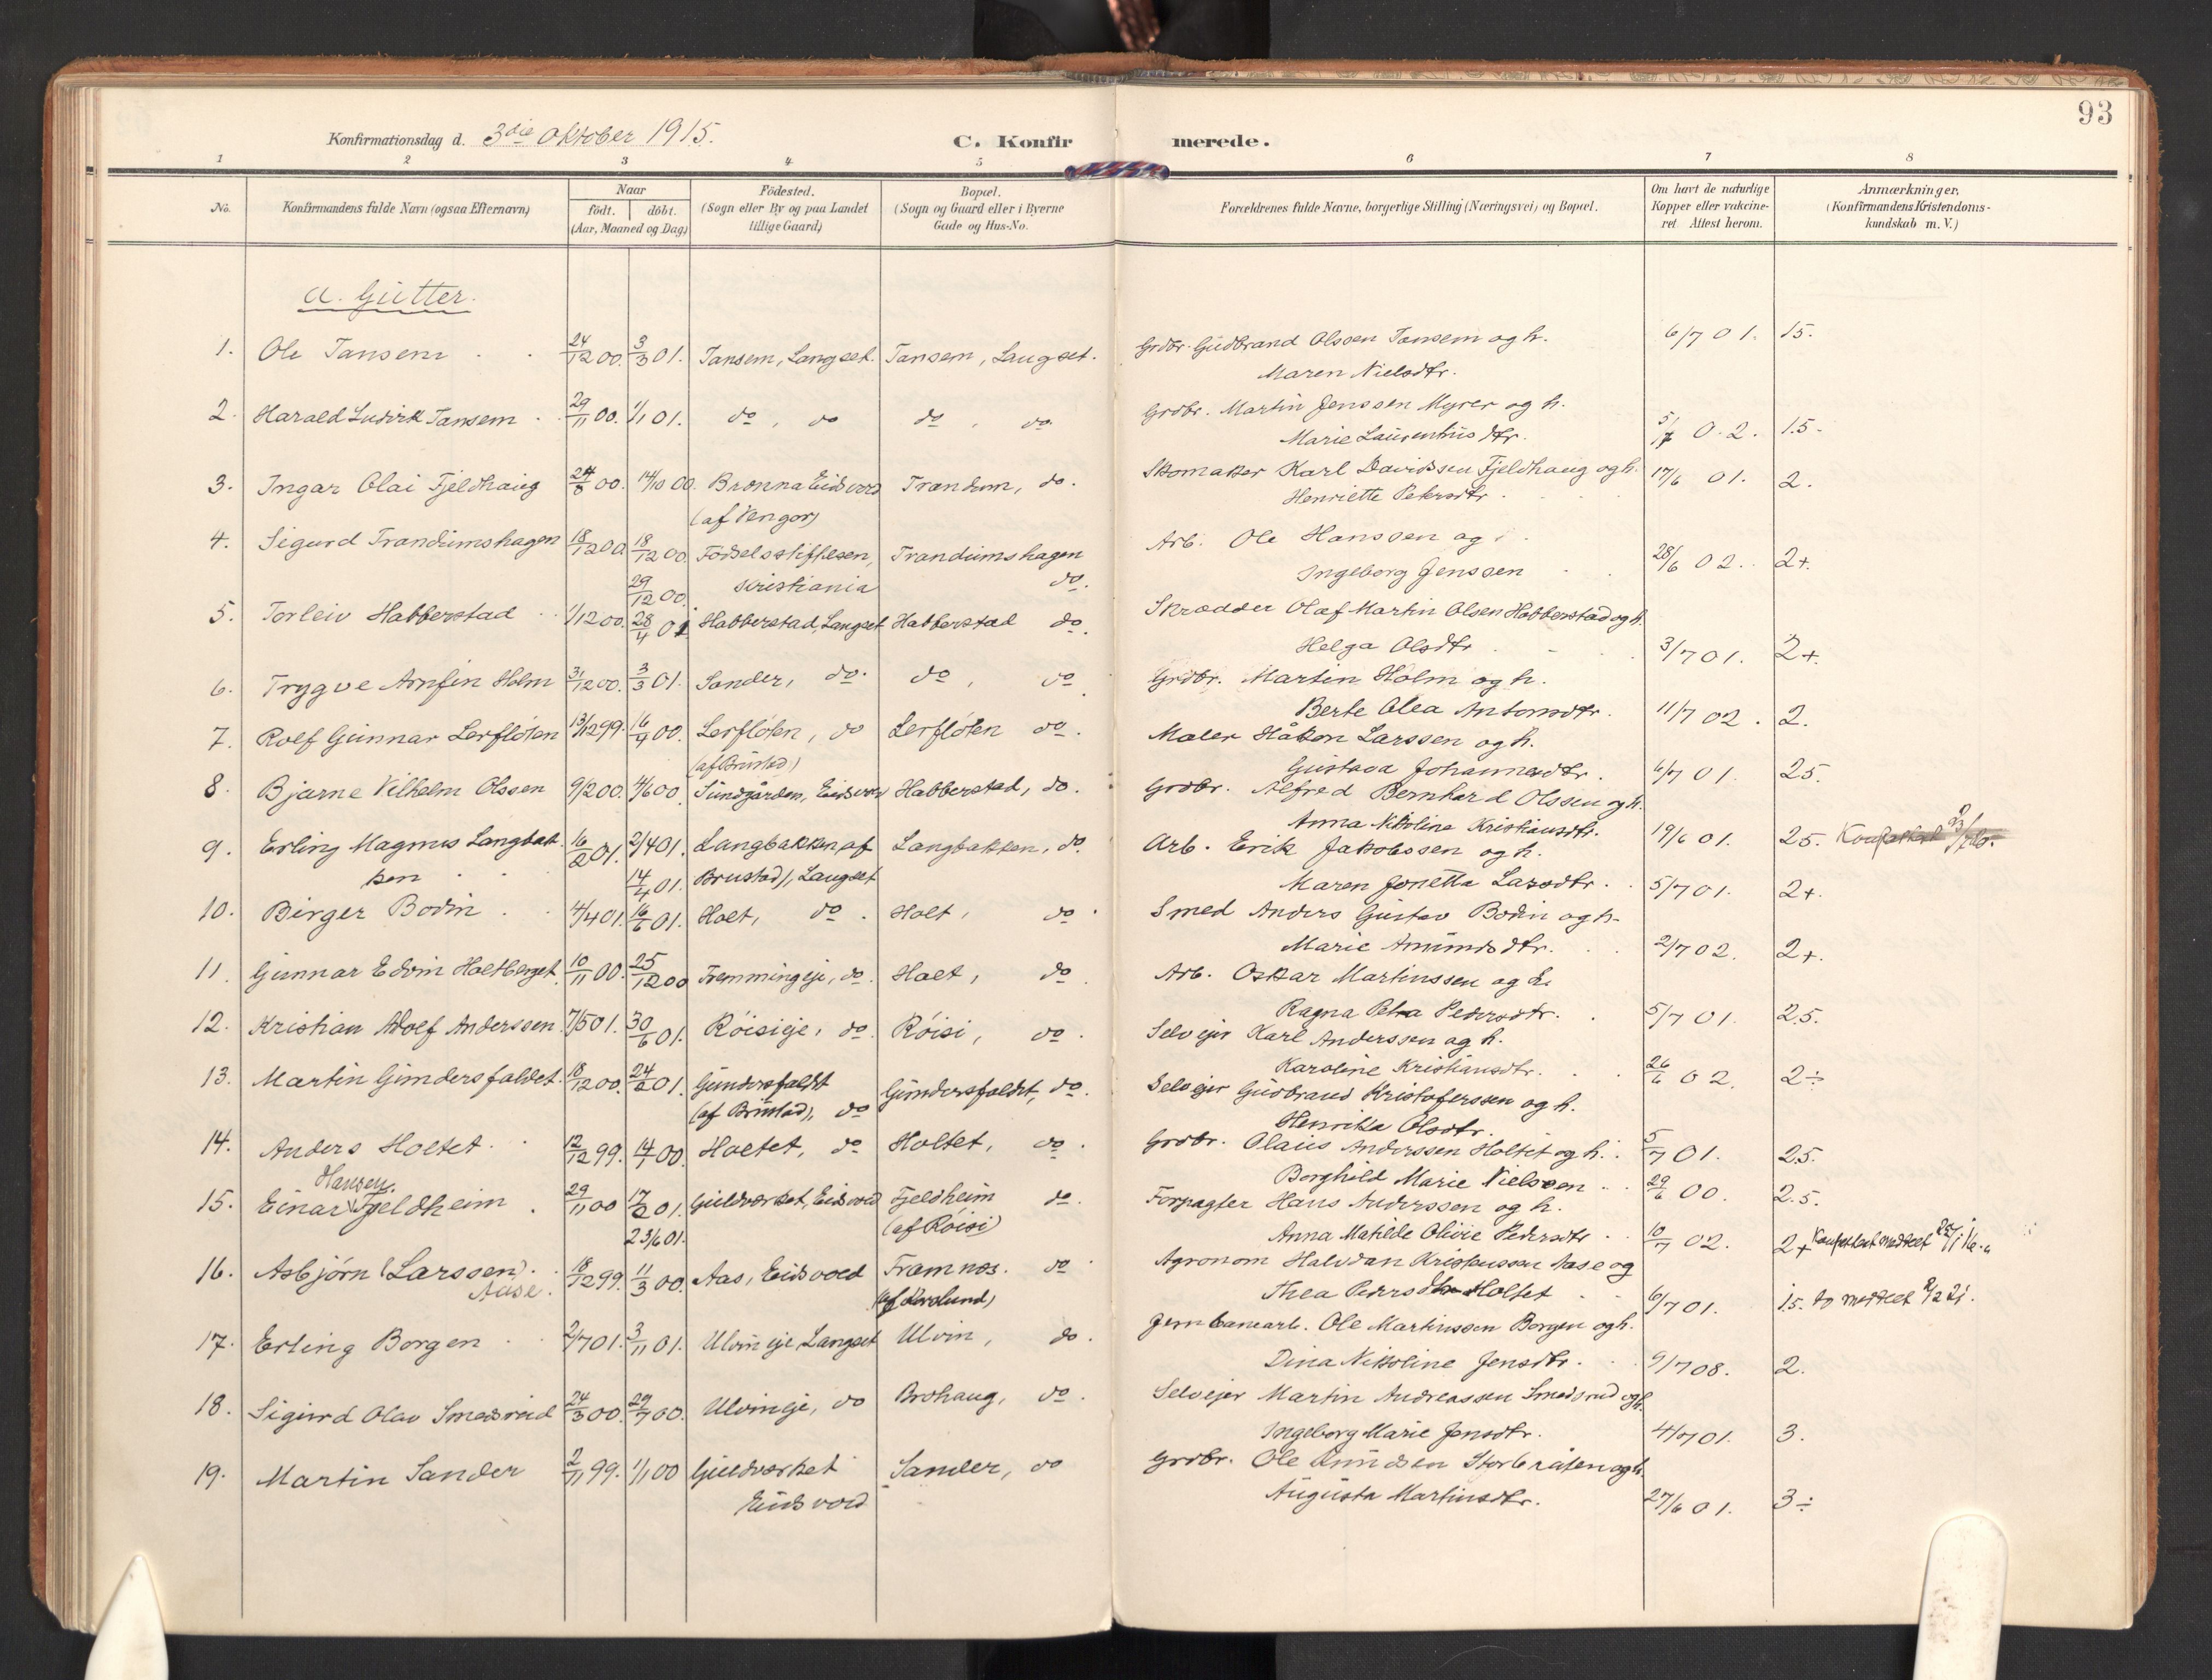 93
Konfirmationsdag d. 3die Oktober 1915.
C. Konfirmerede.
1 2 3 4 5 6 7 8
No.
Konfirmandens fulde Navn (ogsaa Efternavn)
Naar
födt. döbt.
(Aar, Maaned og Dag)
Födested.
(Sogn eller By og paa Landet
tillige Gaard)
Bopæl.
(Sogn og Gaard eller i Byerne
Gade og Hus-No.
Forældrenes fulde Navne, borgerlige Stilling (Næringsvei) og Bopæl.
Om havt de naturlige
Kopper eller vakcine-
ret Attest herom.
Anmærkninger,
(Konfirmandens Kristendoms-
kundskab m. V.)
a. Gutter.
1. Ole Tansem 24/12 00. 3/3 01. Tansem, Langset. Tansem, Langset. Grdbr. Gudbrand Olssen Tansem og h. 6/7 01. 15.
Maren Nielsdtr.
2. Harald Ludvik Tansem 29/11 00. 1/1 01. do, do do, do. Grdbr. Martin Jenssen Myrer og h.
Marie Laurentiusdtr. 5/7 02. 1.5.
3. Ingar Olai Fjeldhaug 24/8 00. 14/10 00. Brønna Eidsvold Trandum, do. Skomaker Karl Davidssen Fjeldhaug og h. 17/6 01. 2.
(af Vengor) Henriette Petersdtr.
4. Sigurd Trandumshagen 18/12 00 18/12 00 Fødselsstiftelsen, Trandumshagen Arb. Ole Hanssen og
29/12 00. Kristiania do. Ingeborg Jenssen 28/6 02. 2+.
5. Torleiv Habberstad 1/12 00. 28/4 01 Habberstad, Langset Habberstad do. Skrædder Olaf Martin Olsen Habberstad og h.
Helga Olsdtr. 3/7 01. 2+.
6. Trygve Arnfin Holm 31/12 00. 3/3 01. Sander, do. do, do. Grdbr. Martin Holm og h.
Berte Olea Antonsdtr. 11/7 02. 2.
7. Rolf Gunnar Lerfloten 13/12 99. 16/4 00. Lerfloten, do Lerfloten do. Maler Håkon Larssen og h.
(af Brustad) Gustava Johannesdtr. 6/7 01. 25.
8. Bjarne Vilhelm Olssen 9/2 00. 4/6 00. Sundgården, Eidsvold Habberstad, do. Grdbr. Alfred Bernhard Olssen og h.
Anna Nikoline Kristiansdtr. 19/6 01. 25.
9. Erling Magnus Langbak- 16/2 01. 2/4 01. Langbakken, af Langbakken, do. Arb. Erik Jakobssen og h.
ken 14/4 01. Brustad), Langset Maren Jonetta Larsdtr. 5/7 01. 2+.
10. Birger Bodin 4/4 01. 16/6 01. Holt, do. Holt, do. Smed Anders Gustav Bodin og h.
Marie Amundsdtr. 2/7 02. 2+.
11. Gunnar Edvin Holtberget 10/11 00. 25/12 00 Fremmingeje, do. Holt, do. Arb. Oskar Martinssen og h.
Ragna Petra Pedersdtr. 5/7 01. 25.
12. Kristian Adolf Anderssen. 7/5 01. 30/6 01. Röisieje, do. Röisi, do. Selvejer Karl Anderssen og h.
Karoline Kristiansdtr. 26/6 02. 2÷
13. Martin Gundersfaldet. 18/12 00. 24/2 01. Gundersfaldt Gundersfaldet, do. Selvejer Gudbrand Kristoferssen og h.
(af Brustad), do Henrikka Olsdtr.
14. Anders Holtet. 12/12 99. 14/1 00. Holtet, do Holtet, do. Grdbr. Olaus Anderssen Holtet og h. 5/7 01. 25.
Borghild Marie Nielssen 29/6 00. 2.5.
Hansen
15. Einar Fjeldheim 29/11 00 17/2 01. Guldværket, Eidsvold Fjeldheim do. Forpagter Hans Anderssen og h.
23/6 01. (af Röisi) Anna Matilde Olivie Pedersdtr. 10/7 02. 2+
16. Asbjørn (Larssen). 18/12 99. 11/3 00. Aas, Eidsvold Framnes. do Agronom Halvdan Kristenssen Aase og
Aase. Thea Pedersdtr Holtet 6/7 01. 1.5. do meddelt 2/2 21.
17. Erling Borgen 2/7 01. 3/11 01. Ulvin eje Langset Ulvin, do. Jernbanearb. Ole Martinssen Borgen og h.
Dina Nikoline Jensdtr. 9/7 08. 2.
18. Sigurd Olav Smedsrud 24/3 00. 29/7 00. Ulvineje, do Brohaug, do. Selvejer Martin Andreassen Smedsrud og h.
Ingeborg Marie Jensdtr. 4/7 01. 3.
19. Martin Sander 2/11 99. 1/1 00 Guldværket Sander, do Grdbr. Ole Knudsen Storbråten og h.
Eidsvold Augusta Martinsdtr. 27/6 01. 3÷